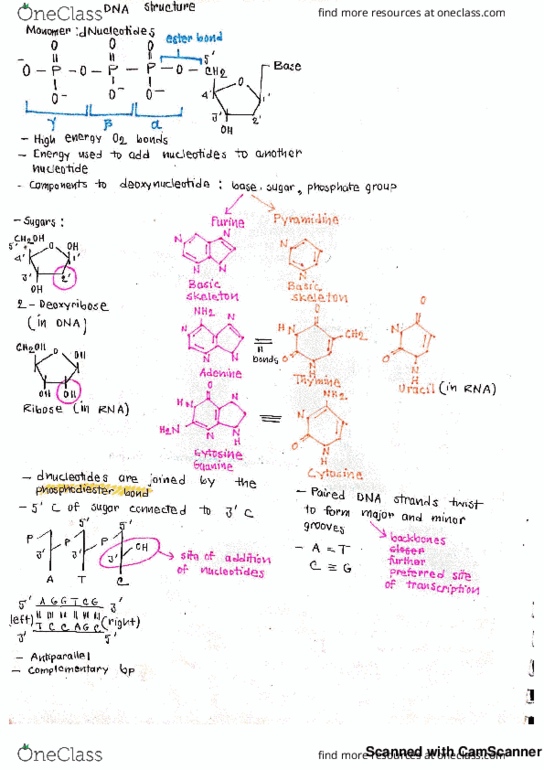 OneClass
find more resources at oneclass.com
DNA structure
Monomer: dNucleotides
ester bond
O O O 5'
⁻O — P — O — P — P — O — CH2 O Base
O⁻ O⁻ O⁻ 4' 1'
3' 2'
OH
γ β α
- High energy O2 bonds
- Energy used to add nucleotides to another
nucleotide
- Components to deoxynucleotide : base, sugar, phosphate group
Purine Pyramidine
- Sugars :
CH2OH OH
5' O
4' 1'
3' 2'
OH
2-Deoxyribose
(in DNA)
N N N N
Basic
skeleton
N N
Basic
skeleton
NH2
N N N N
Adenine
H
bonds
O
HN CH2
O N
H
Thymine
O
N
O N
H
Uracil (in RNA)
CH2OH OH
O
OH OH
Ribose (in RNA)
O
HN N
H2N N N
H
Cytosine
Guanine
NH2
N
O N
H
Cytosine
- dnucleotides are joined by the
phosphodiester bond
- 5' C of sugar connected to 3' C
5' 5'
P P P
3' 3' 3' OH
A T C
site of addition
of nucleotides
- Paired DNA strands twist
to form major and minor
grooves
backbones
closer
further
preferred site
of transcription
- A = T
C ≡ G
5' A G G T C G 3'
left) (right)
3' T C C A G C 5'
- Antiparallel
- Complementary bp
OneClass
find more resources at oneclass.com
Scanned with CamScanner